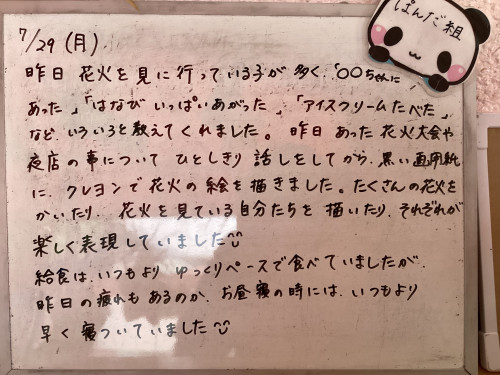 ぱんだ組
7/29 (月)
昨日 花火を見に行っている子が多く、「〇〇ちゃんに
あった」「はなび いっぱいあがった」「アイスクリームたべた」
など、いろいろと教えてくれました。昨日あった花火大会や
夜店の事について ひとしきり 話しをしてから、黒い画用紙
に、クレヨンで花火の絵を描きました。たくさんの花火を
かいたり、花火を見ている自分たちを描いたり、それぞれが
楽しく表現していました
給食は、いつもより ゆっくりペースで食べていましたが、
昨日の疲れもあるのか、お昼寝の時には、いつもより
早く寝ついていました